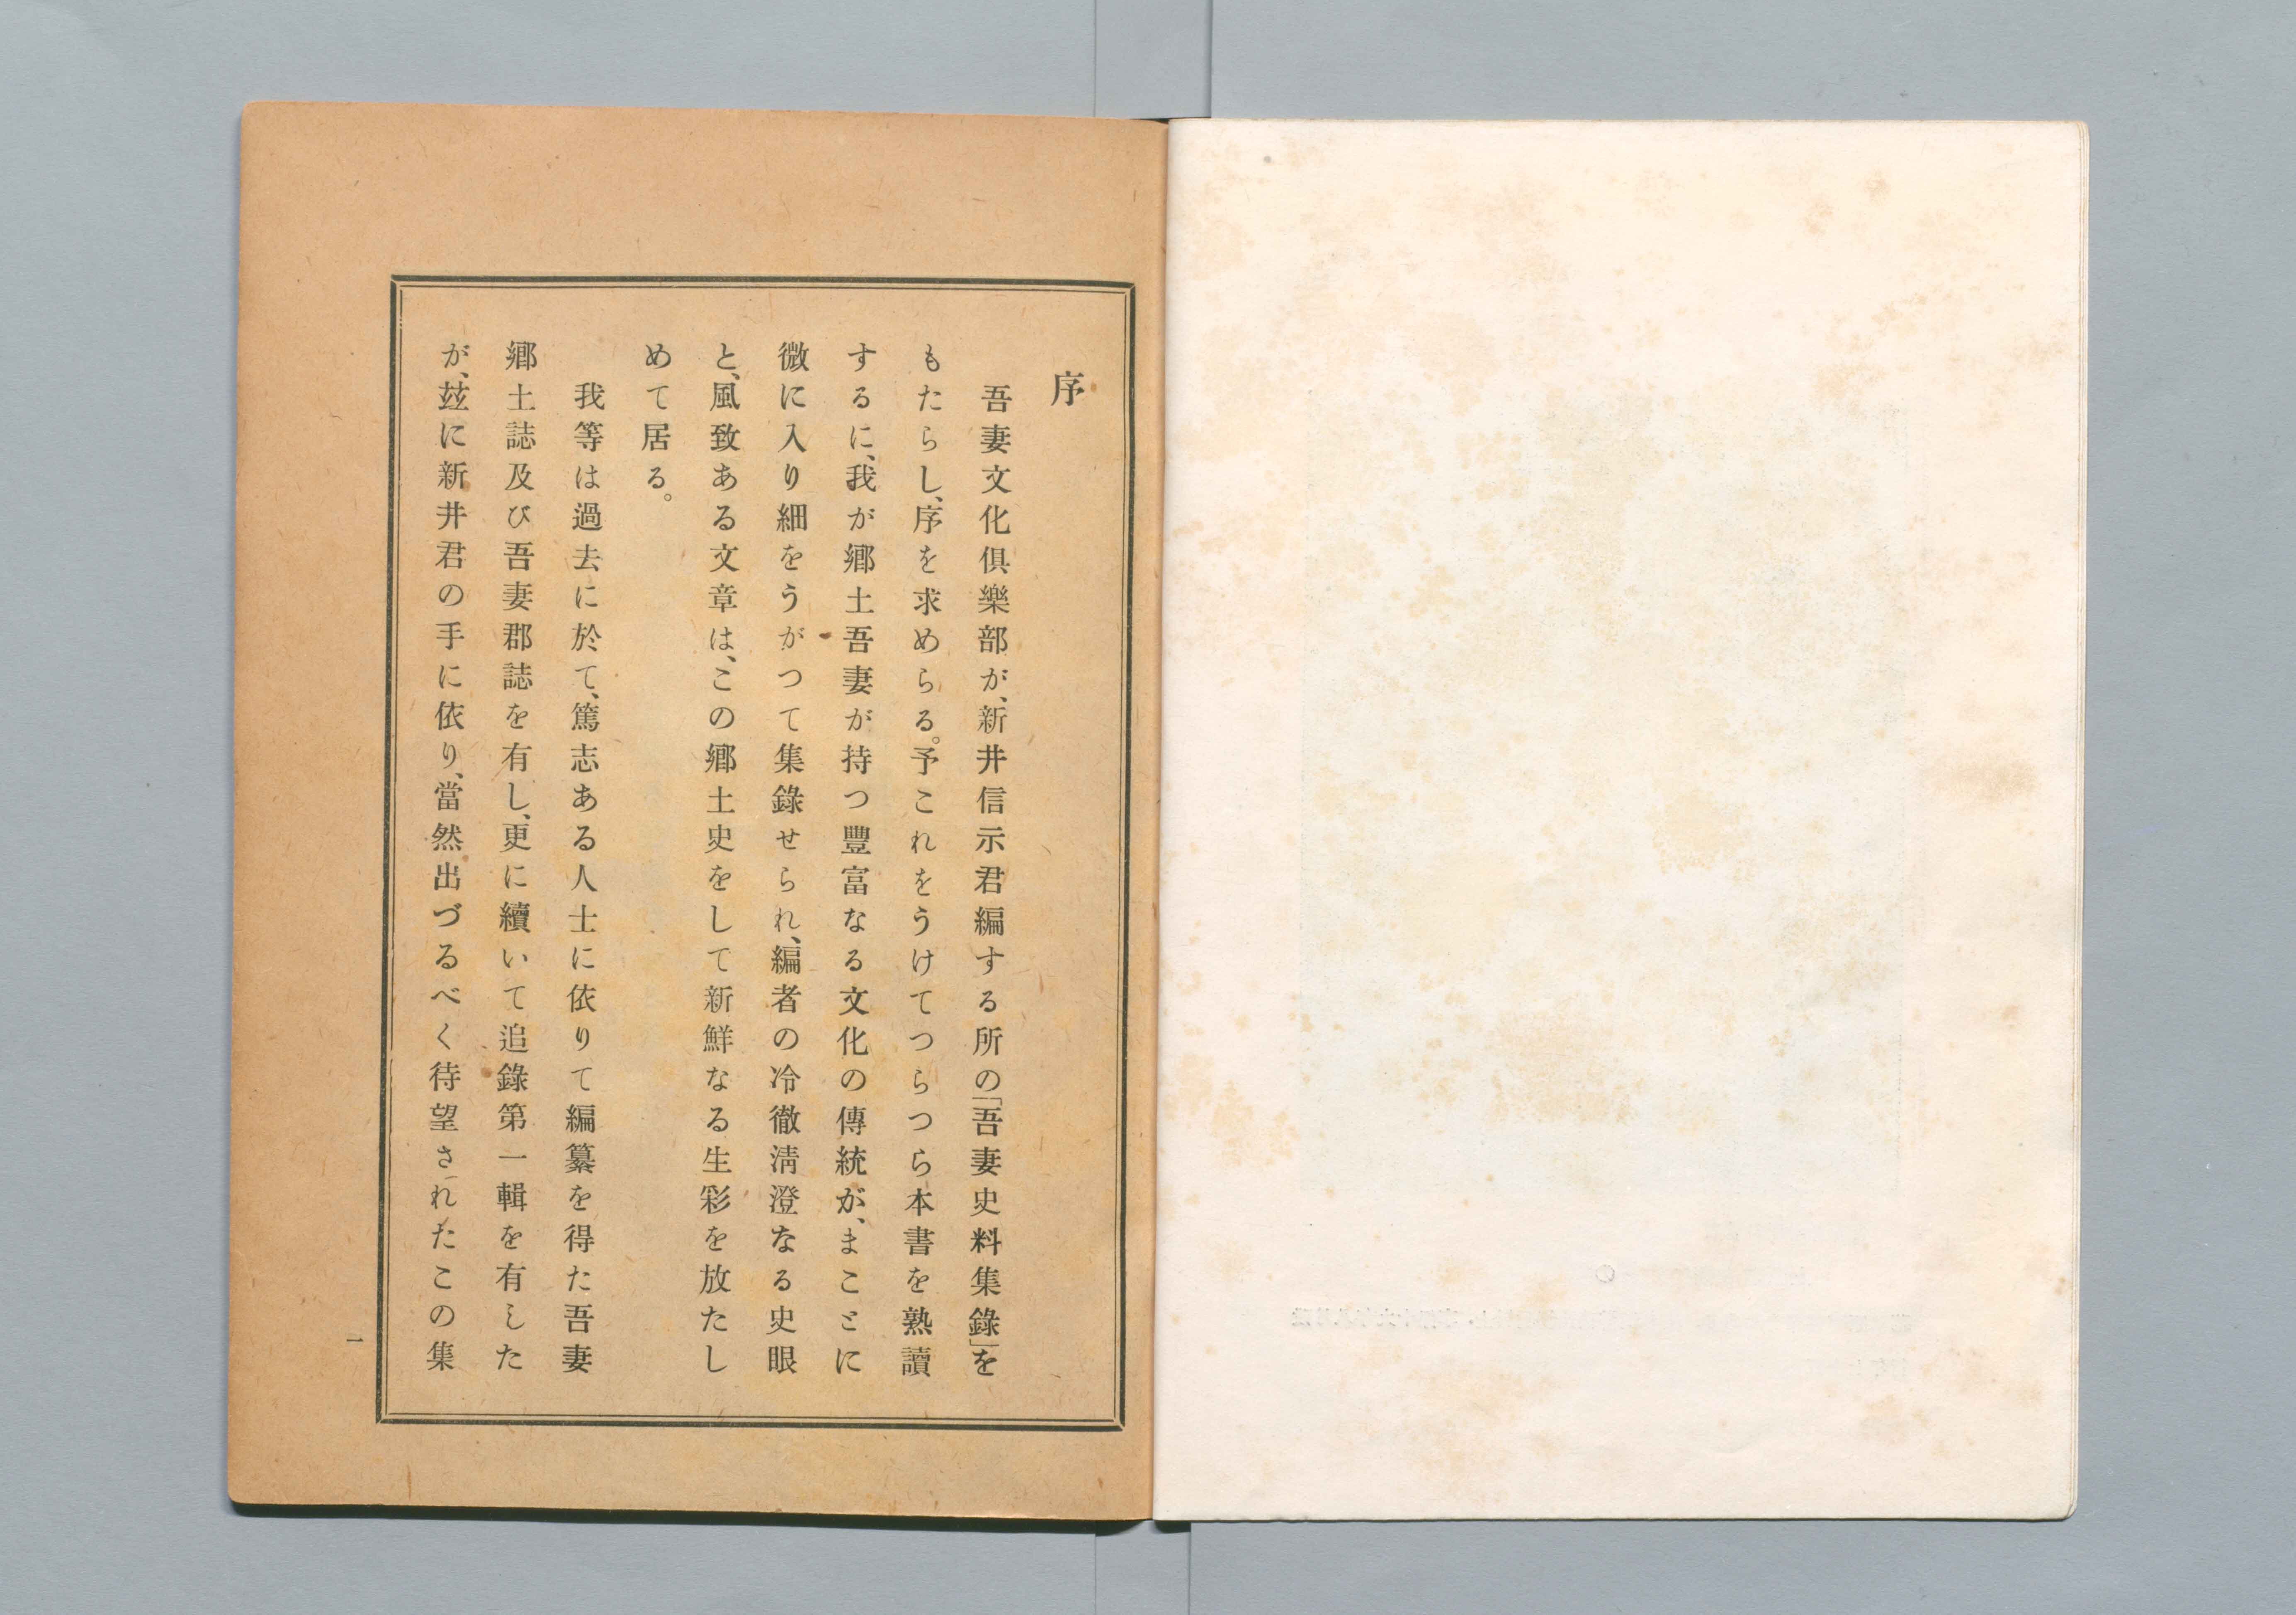 序
吾妻文化俱樂部が、新井信示君編する所の「吾妻史料集錄」を
もたらし、序を求めらる。予これをうけてつらつら本書を熟讀
するに、我が鄕土吾妻が持つ豐富なる文化の傳統が、まことに
微に入り細をうがつて集錄せられ、編者の冷徹淸澄なる史眼
と、風致ある文章は、この鄕土史をして新鮮なる生彩を放たし
めて居る。
我等は過去に於て、篤志ある人士に依りて編纂を得た吾妻
鄕土誌及び吾妻郡誌を有し、更に續いて追錄第一輯を有した
が、玆に新井君の手に依り、當然出づるべく待望されたこの集
一